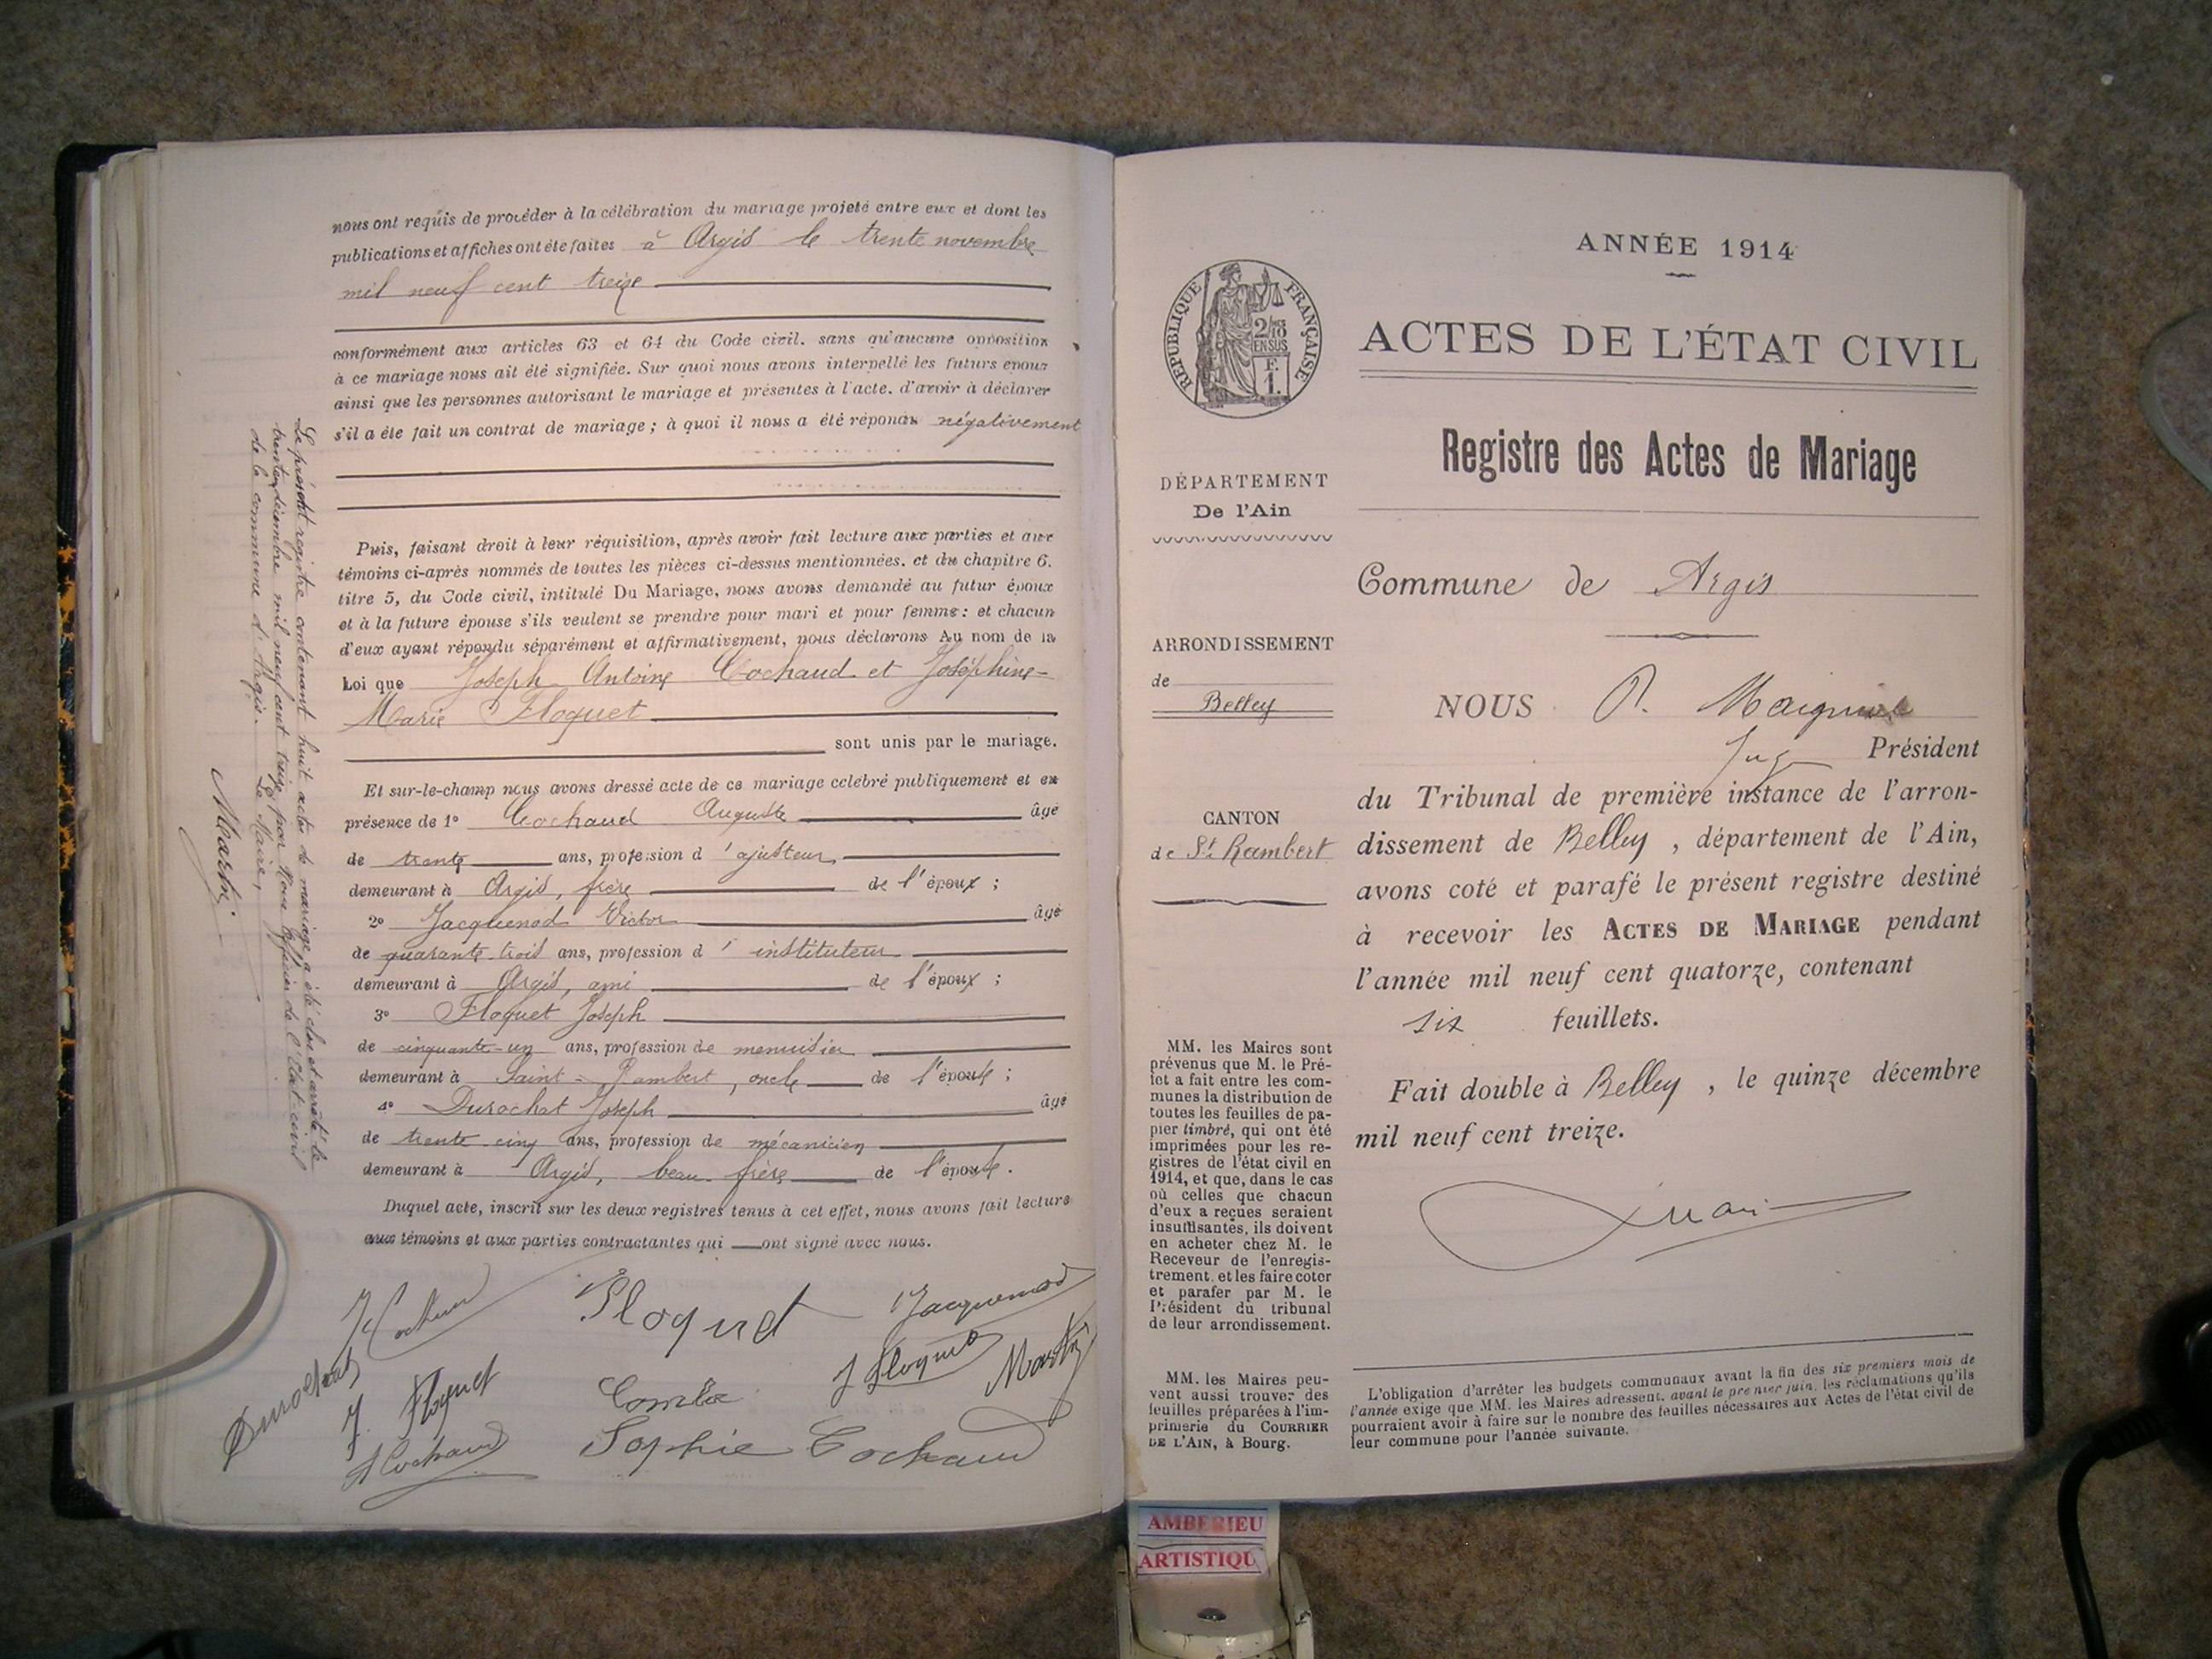 nous ont requis de procéder à la célébration du mariage projeté entre eux et dont les
publications et affiches ont été faites à Argis le trente novembre
mil neuf cent treize
conformément aux articles 63 et 64 du Code civil. sans qu'aucune opposition
à ce mariage nous ait été signifiée. Sur quoi nous avons interpellé les futurs époux
ainsi que les personnes autorisant le mariage et présentes à l'acte. d'avoir à déclarer
s'il a été fait un contrat de mariage ; à quoi il nous a été répondu négativement
Puis, faisant droit à leur réquisition, après avoir fait lecture aux parties et aux
témoins ci-après nommés de toutes les pièces ci-dessus mentionnées. et du chapitre 6.
titre 5, du Code civil, intitulé Du Mariage, nous avons demandé au futur époux
et à la future épouse s'ils veulent se prendre pour mari et pour femme : et chacun
d'eux ayant répondu séparément et affirmativement, nous déclarons Au nom de la
Loi que Joseph Antoine Cochaud et Joséphine-
Marie Floquet
sont unis par le mariage.
Et sur-le-champ nous avons dressé acte de ce mariage célébré publiquement et en
présence de 1° Cochaud Auguste âgé
de trente ans, profession d'ajusteur
demeurant à Argis, frère de l'époux ;
2° Jacquemod Victor âgé
de quarante-trois ans, profession d'instituteur
demeurant à Argis, ami de l'époux ;
3° Floquet Joseph
de cinquante-un ans, profession de menuisier
demeurant à Saint-Rambert, oncle de l'épouse ;
4° Durochat Joseph âgé
de trente-cinq ans, profession de mécanicien
demeurant à Argis, beau-frère de l'épouse.
Duquel acte, inscrit sur les deux registres tenus à cet effet, nous avons fait lecture
aux témoins et aux parties contractantes qui ont signé avec nous.
Floquet Jacquemod
Durochat J. Floquet J Floquet Martin
A Cochaud Sophie Cochaud
Le présent registre contenant huit actes de mariage a été clos et arrêté le
trente un décembre mil neuf cent treize par Nous Officier de l'Etat-civil
de la commune d'Argis. Le Maire,
Martin
ANNÉE 1914
RÉPUBLIQUE FRANÇAISE
2/10 EN SUS
F.
1.
ACTES DE L'ÉTAT CIVIL
Registre des Actes de Mariage
DÉPARTEMENT
De l'Ain
ARRONDISSEMENT
de
Belley
CANTON
de St Rambert
Commune de Argis
NOUS P.
Juge Président
du Tribunal de première instance de l'arron-
dissement de Belley, département de l'Ain,
avons coté et parafé le présent registre destiné
à recevoir les ACTES DE MARIAGE pendant
l'année mil neuf cent quatorze, contenant
six feuillets.
Fait double à Belley, le quinze décembre
mil neuf cent treize.
MM. les Maires sont
prévenus que M. le Pré-
fet a fait entre les com-
munes la distribution de
toutes les feuilles de pa-
pier timbré, qui ont été
imprimées pour les re-
gistres de l'état civil en
1914, et que, dans le cas
où celles que chacun
d'eux a reçues seraient
insuffisantes, ils doivent
en acheter chez M. le
Receveur de l'enregis-
trement, et les faire coter
et parafer par M. le
Président du tribunal
de leur arrondissement.
MM. les Maires peu-
vent aussi trouver des
feuilles préparées à l'im-
primerie du COURRIER
DE L'AIN, à Bourg.
L'obligation d'arrêter les budgets communaux avant la fin des six premiers mois de
l'année exige que MM. les Maires adressent, avant le premier juin, les réclamations qu'ils
pourraient avoir à faire sur le nombre des feuilles nécessaires aux Actes de l'état civil de
leur commune pour l'année suivante.
AMBERIEU
ARTISTIQU